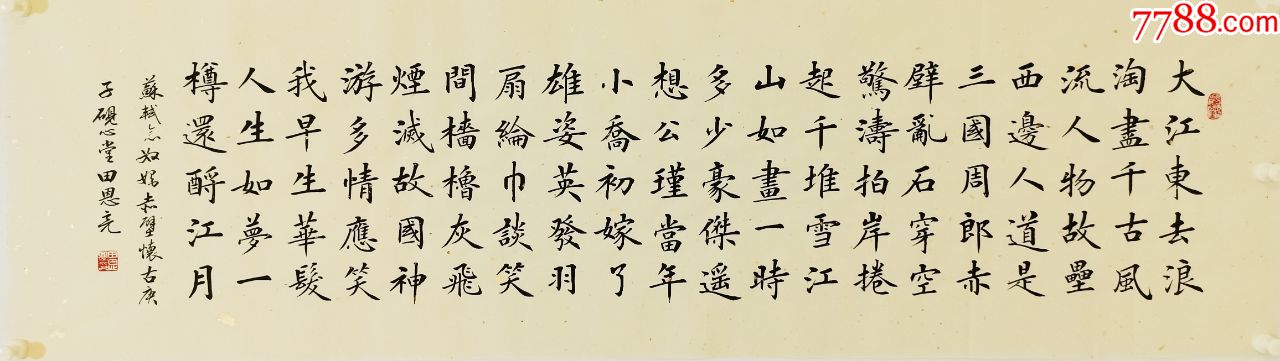 7788.com
大江東去浪
淘盡千古風
流人物故壘
西邊人道是
三國周郎赤
壁亂石穿空
驚濤拍岸捲
起千堆雪江
山如畫一時
多少豪傑遥
想公瑾當年
小喬初嫁了
雄姿英發羽
扇綸巾談笑
間檣櫓灰飛
煙滅故國神
游多情應笑
我早生華髮
人生如夢一
樽還酹江月
蘇軾念奴嬌赤壁懷古庚
子硯心堂田恩亮